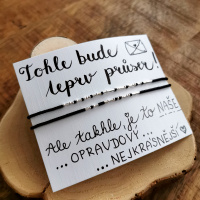 Tohle bude
teprv průser!
Ale takhle, je to NAŠE
... OPRAVDOVÝ ...
... NEJKRÁSNĚJŠÍ